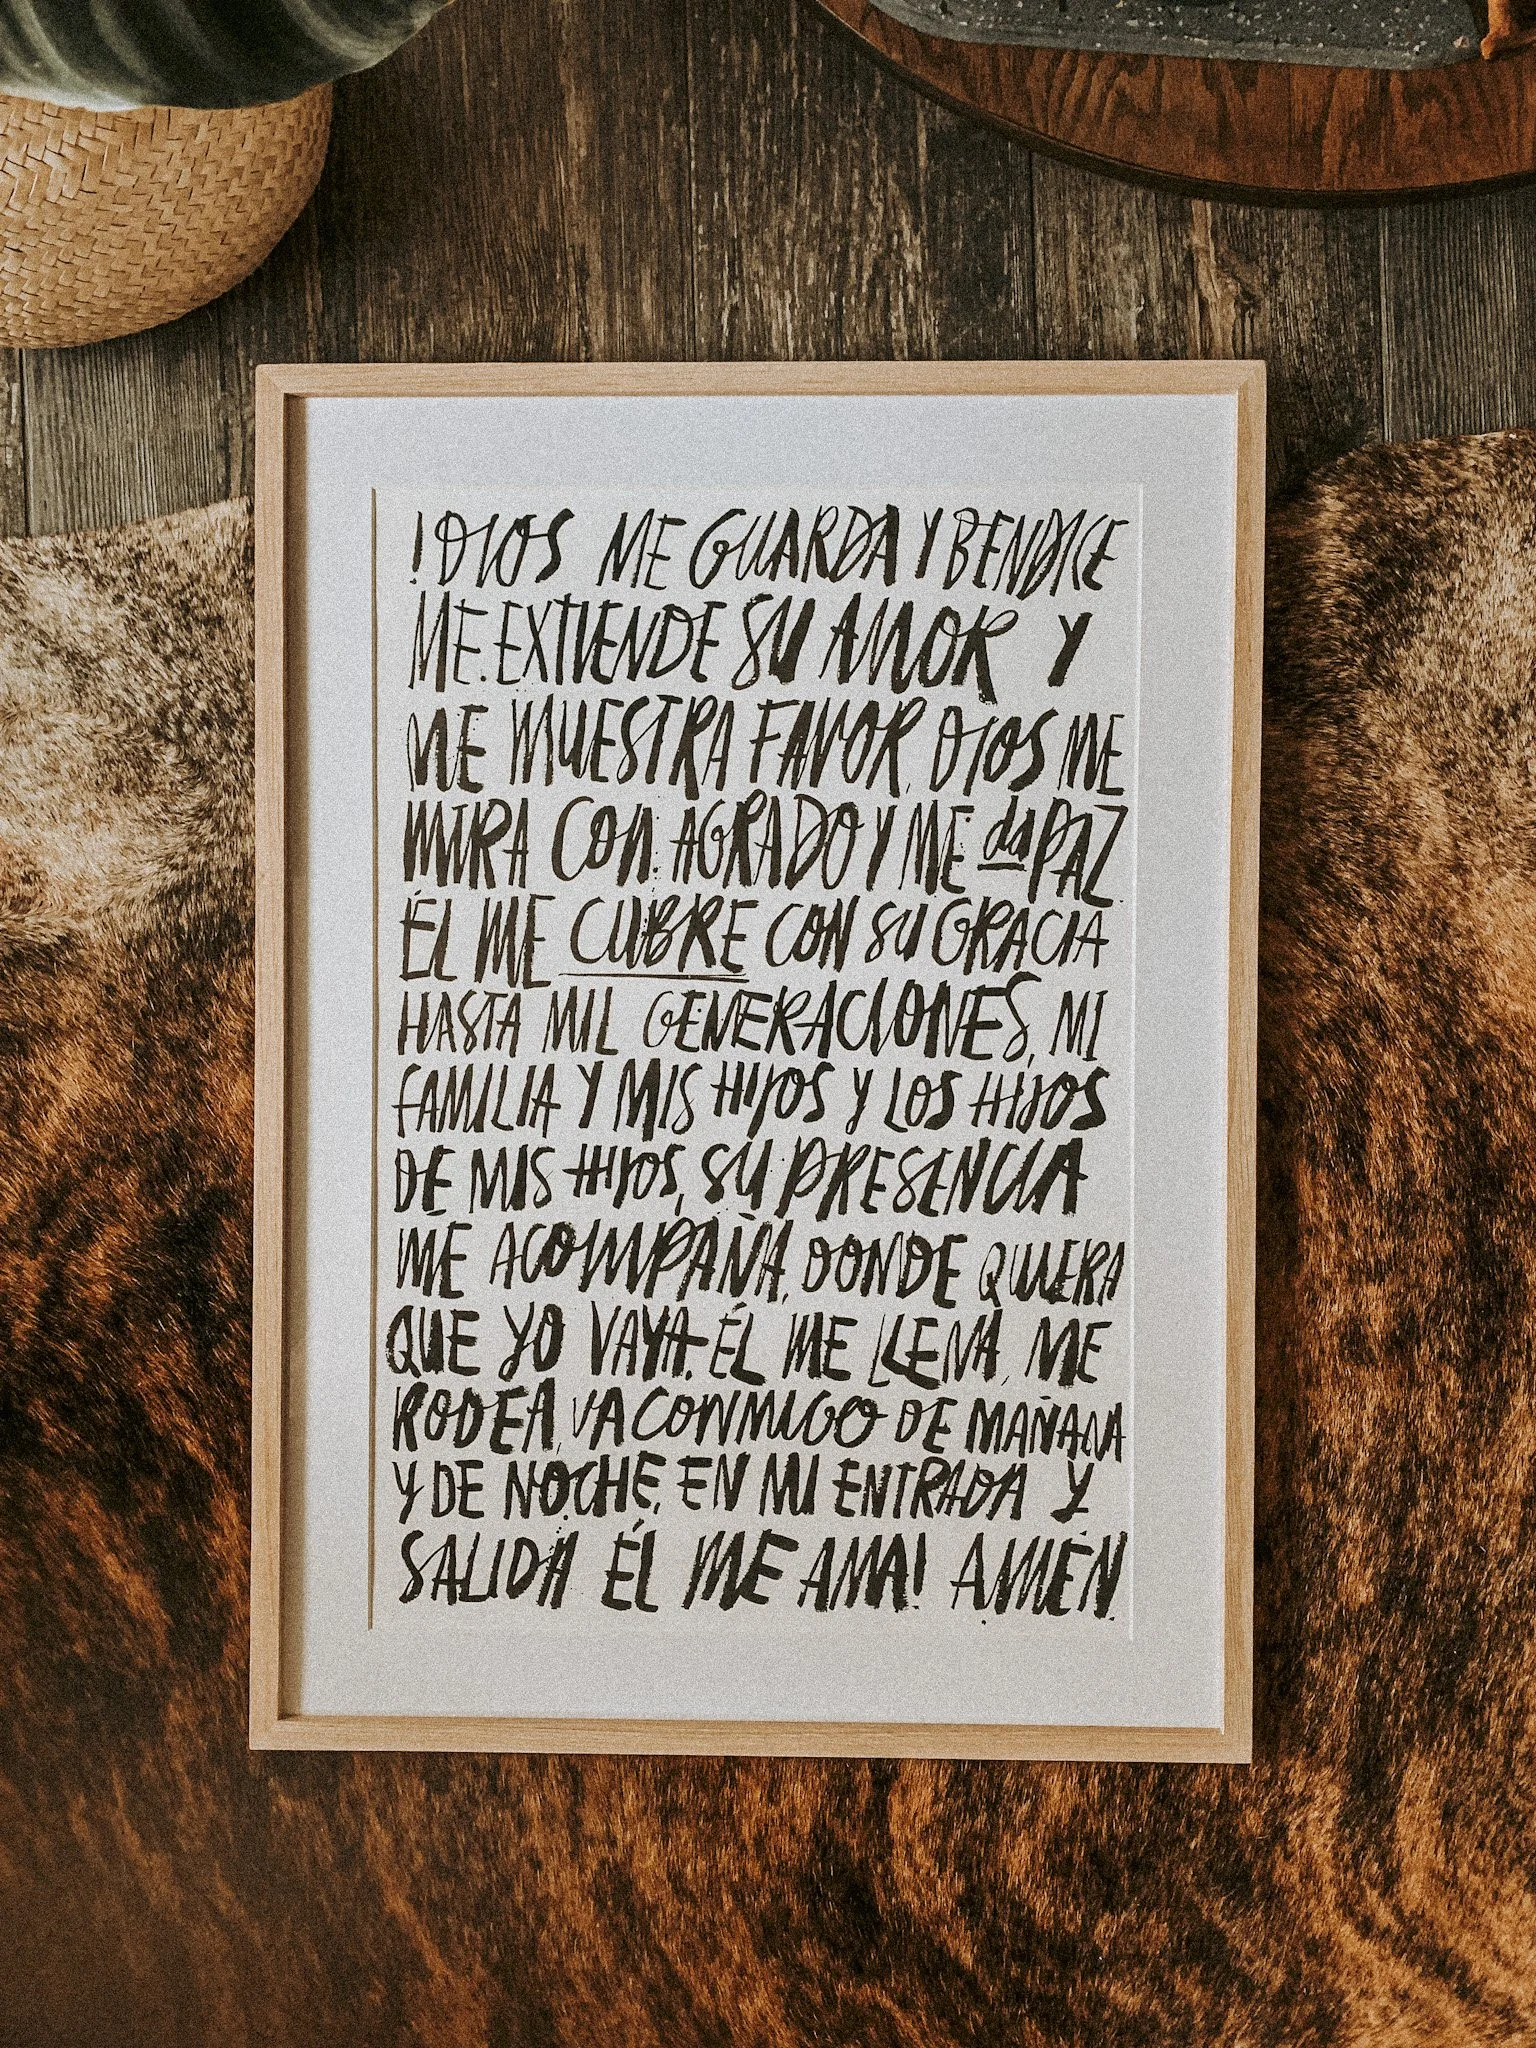 !DIOS ME GUARDA Y BENDICE
ME. EXTIENDE SU AMOR Y
ME MUESTRA FAVOR, DIOS ME
MIRA CON AGRADO Y ME da PAZ
ÉL ME CUBRE CON SU GRACIA
HASTA MIL GENERACIONES, MI
FAMILIA Y MIS HIJOS Y LOS HIJOS
DE MIS HIJOS, SU PRESENCIA
ME ACOMPAÑA, DONDE QUIERA
QUE YO VAYA. ÉL ME LLENA, ME
RODEA, VA CONMIGO DE MAÑANA
Y DE NOCHE, EN MI ENTRADA Y
SALIDA ÉL ME AMA! AMÉN.